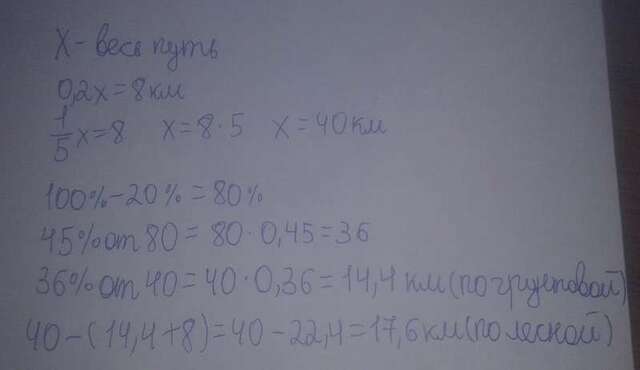 X - весь путь
0,2x = 8 км
1/5 x = 8 x = 8 · 5 x = 40 км
100% - 20% = 80%
45% от 80 = 80 · 0,45 = 36
36% от 40 = 40 · 0,36 = 14,4 км (по грунтовой)
40 - (14,4 + 8) = 40 - 22,4 = 17,6 км (по лесной)